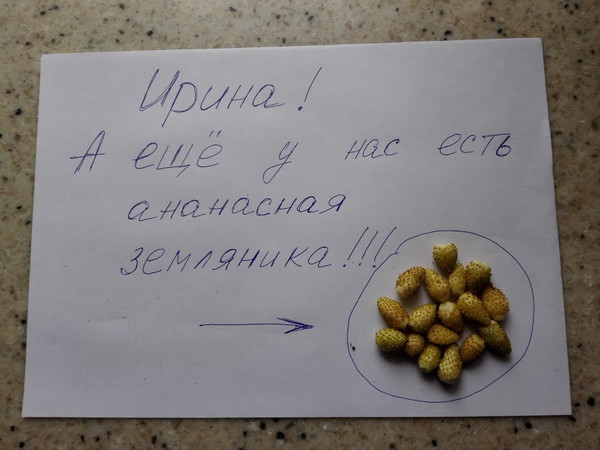 Ирина!
А ещё у нас есть
ананасная
земляника!!!